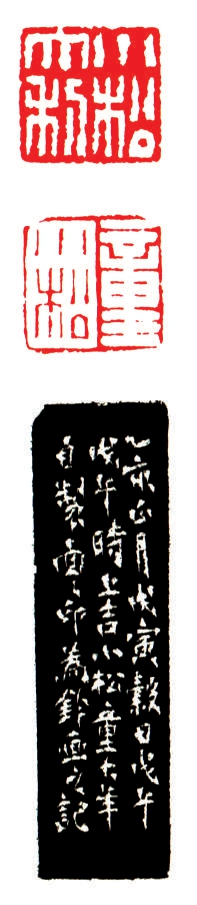 小松
童小松
乙亥正月戊寅穀日戊午
戊午時上吉小松童大年
自製面印為鈐畫之記